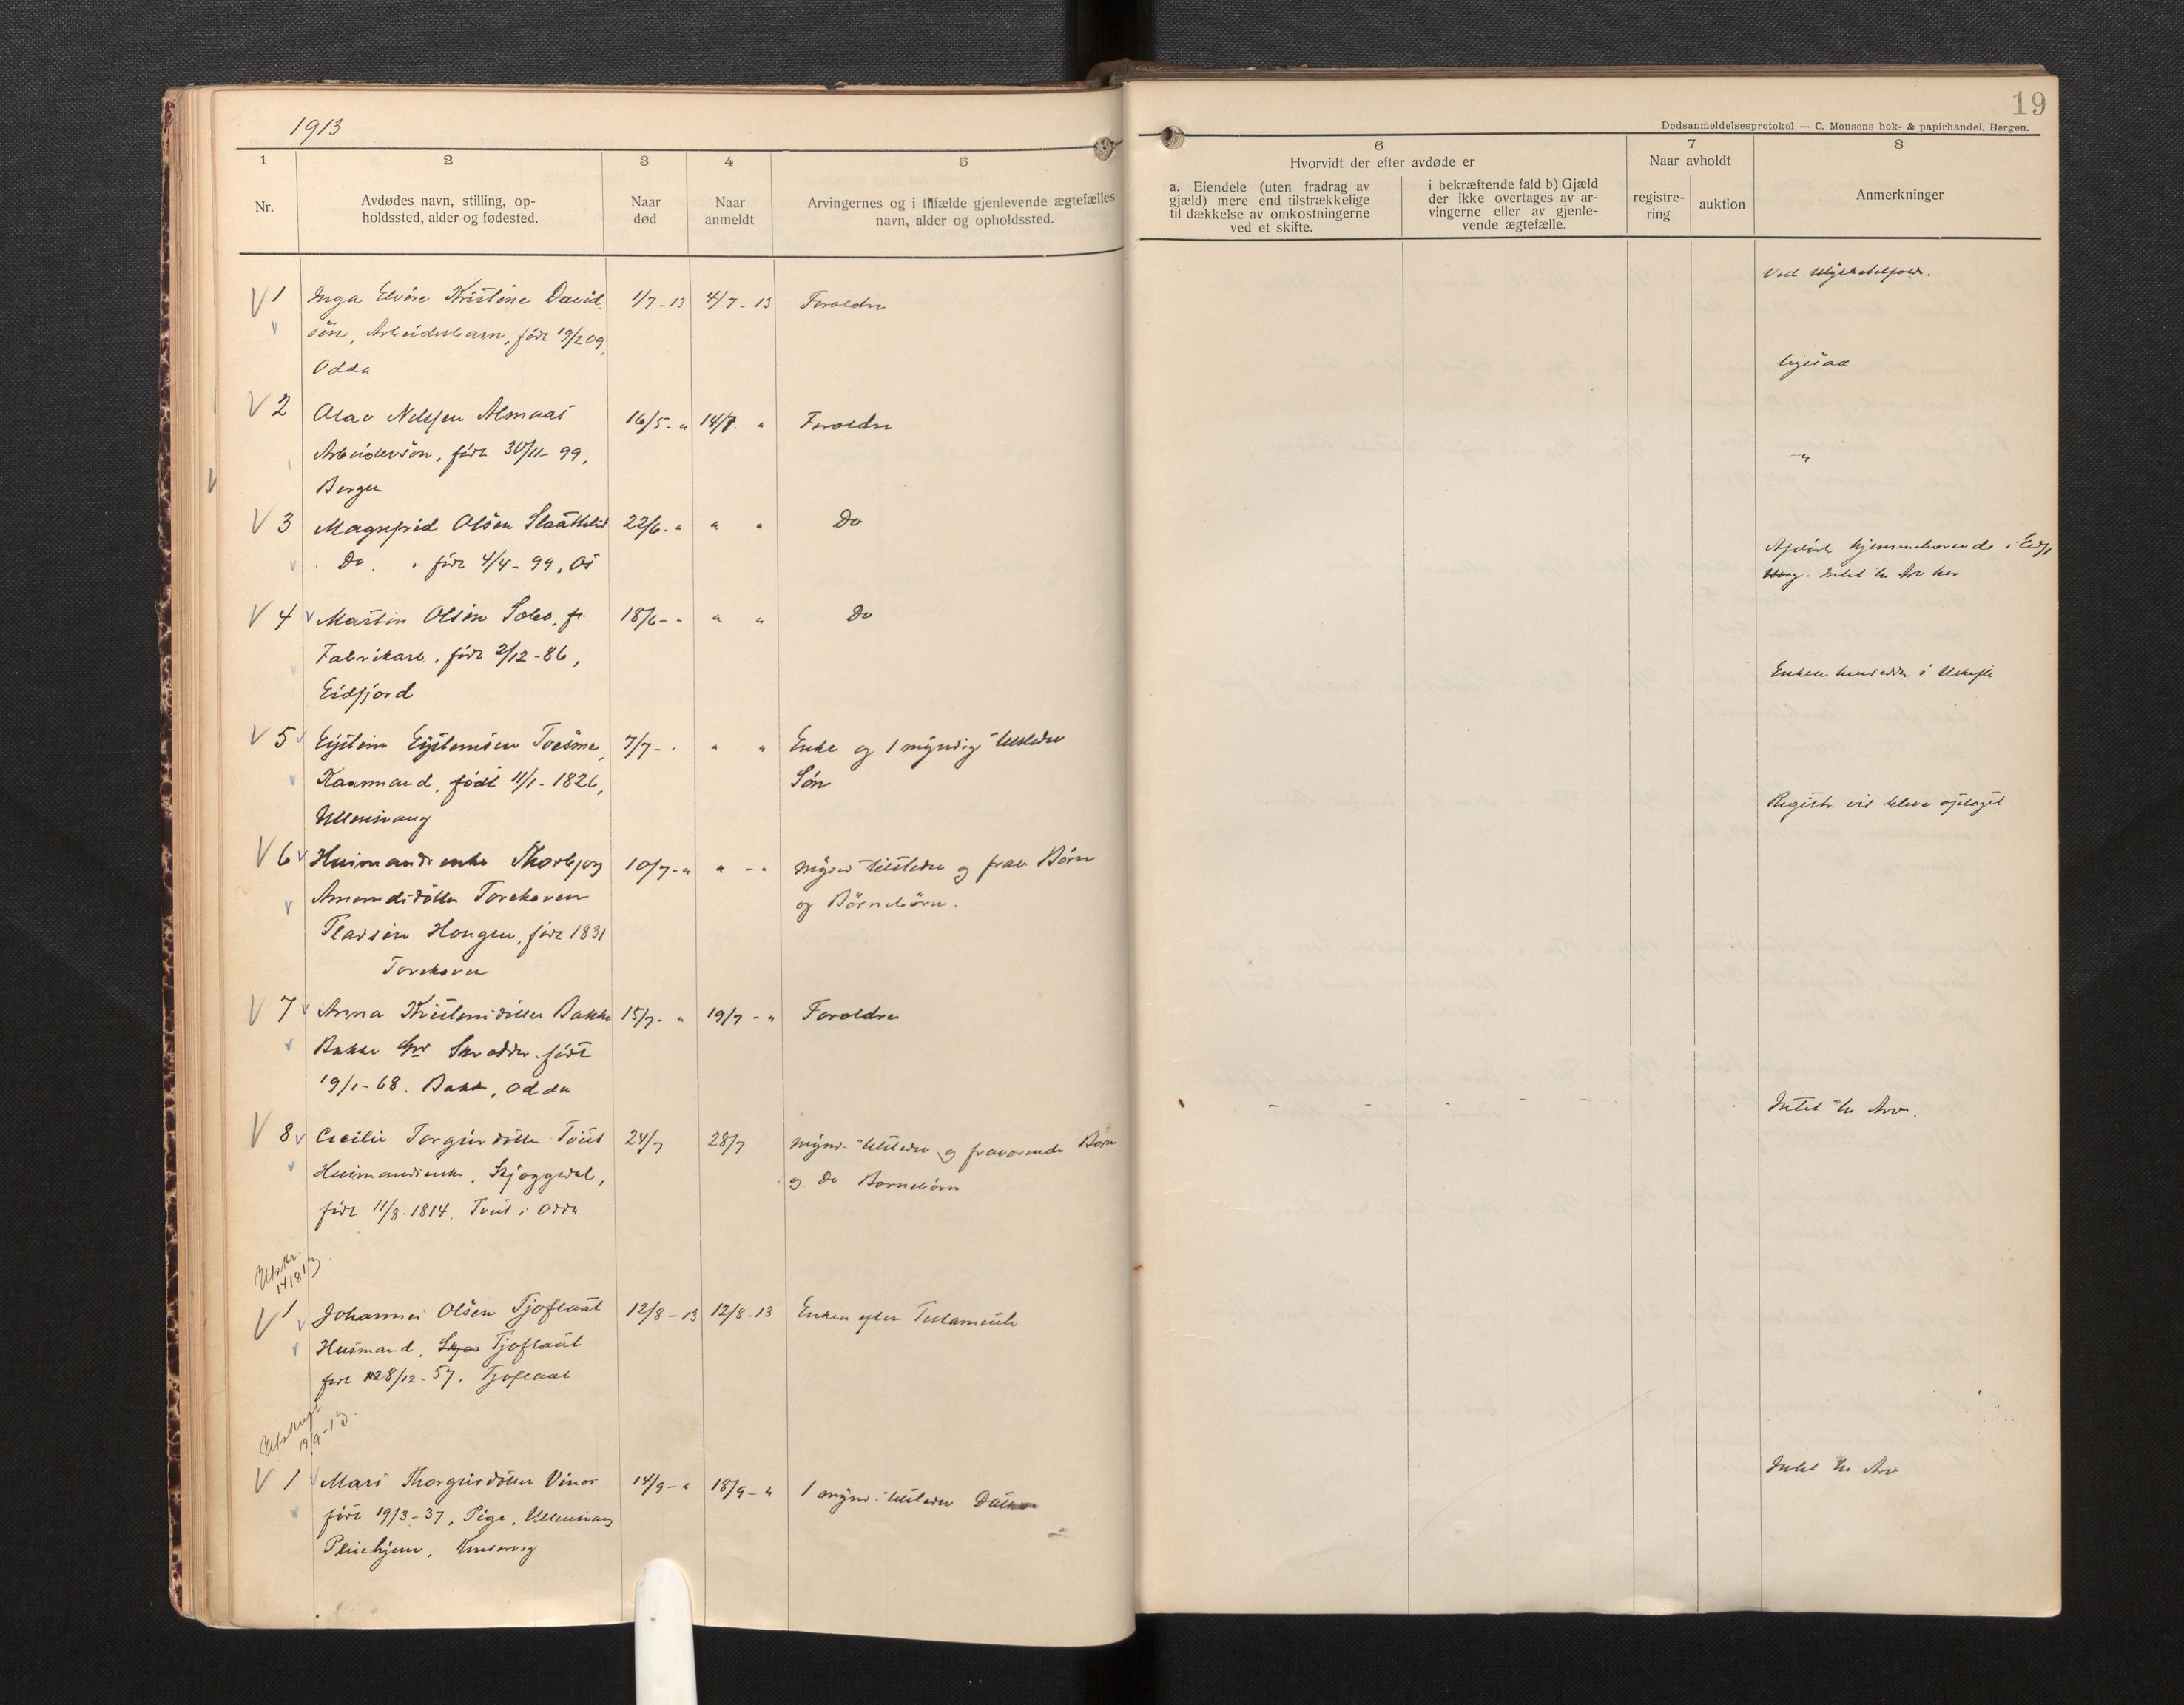 1913
1
2
3
4
5
Nr.
Avdødes navn, stilling, op-
holdssted, alder og fødested.
Naar
død
Naar
anmeldt
Arvingernes og i tilfælde gjenlevende ægtefælles
navn, alder og opholdssted.
V 1 Inga Elvire Kristine David-
sen, Arbeiderbarn, født 19/2 09,
Odda
1/7-13 4/7-13 Forældre
V 2 Olav Nilssen Almaas
Arbeidersøn, født 30/11-99,
Bergen
16/5- " 14/7. " Forældre
V 3 Magnfrid Olsen Slaattelid
Do. født 4/4-99, Os
22/6- " " " Do
V 4 Martin Olsen Sæbø, fr.
Fabrikarb., født 2/12-86,
Eidfjord
18/6- " " " Do
V 5 Eystein Eysteinsen
Kaarmand, født 11/1-1826,
Ullensvang
7/7- " " " Enke og 1 myndig tilstede
Søn
V 6 Husmandsenke Thorbjørg
Amundsdatter
Hougen, født 1831
10/7- " " - " Mynd tilstede og frav Børn
og Børnebørn.
V 7 Anna Kristensdatter Bakke
Bakke født
19/1-68. Bakke, Odda
15/7- " 19/7- " Forældre
V 8 Cecilie Torgeirsdatter
Husmandsenke, Skjæggedal,
født 11/8-1814. i Odda
24/7 28/7 Mynd- tilstede og fraværende Børn
og Do Børnebørn
Utskr.
14/8 13
V 1 Johannes Olsen Tjoflaat
Husmand, Tjoflaat
født 28/12-57. Tjoflaat
12/8-13 12/8-13 Enken efter Testamente
Utskrift
19/9-13
V 1 Mari Thorgeirsdatter Vines
født 19/3-37, Pige, Ullensvang
Pleiehjem, Kinservig
14/9- " 18/9- " 1 mynd. tilstede
19
Dødsanmeldelsesprotokol — C. Monsens bok- & papirhandel, Bergen.
6
Hvorvidt der efter avdøde er
a. Eiendele (uten fradrag av
gjæld) mere end tilstrækkelige
til dækkelse av omkostningerne
ved et skifte.
i bekræftende fald b) Gjæld
der ikke overtages av ar-
vingerne eller av gjenle-
vende ægtefælle.
7
Naar avholdt
registre-
ring
auktion
8
Anmerkninger
Ved Ulykkestilfælde.
ligesaa
- "
Afdøde hjemmehørende i
Intet til Arv her
Enken hensidder i Uskifte
Registr. vil blive optaget
Intet til Arv.
Intet til Arv